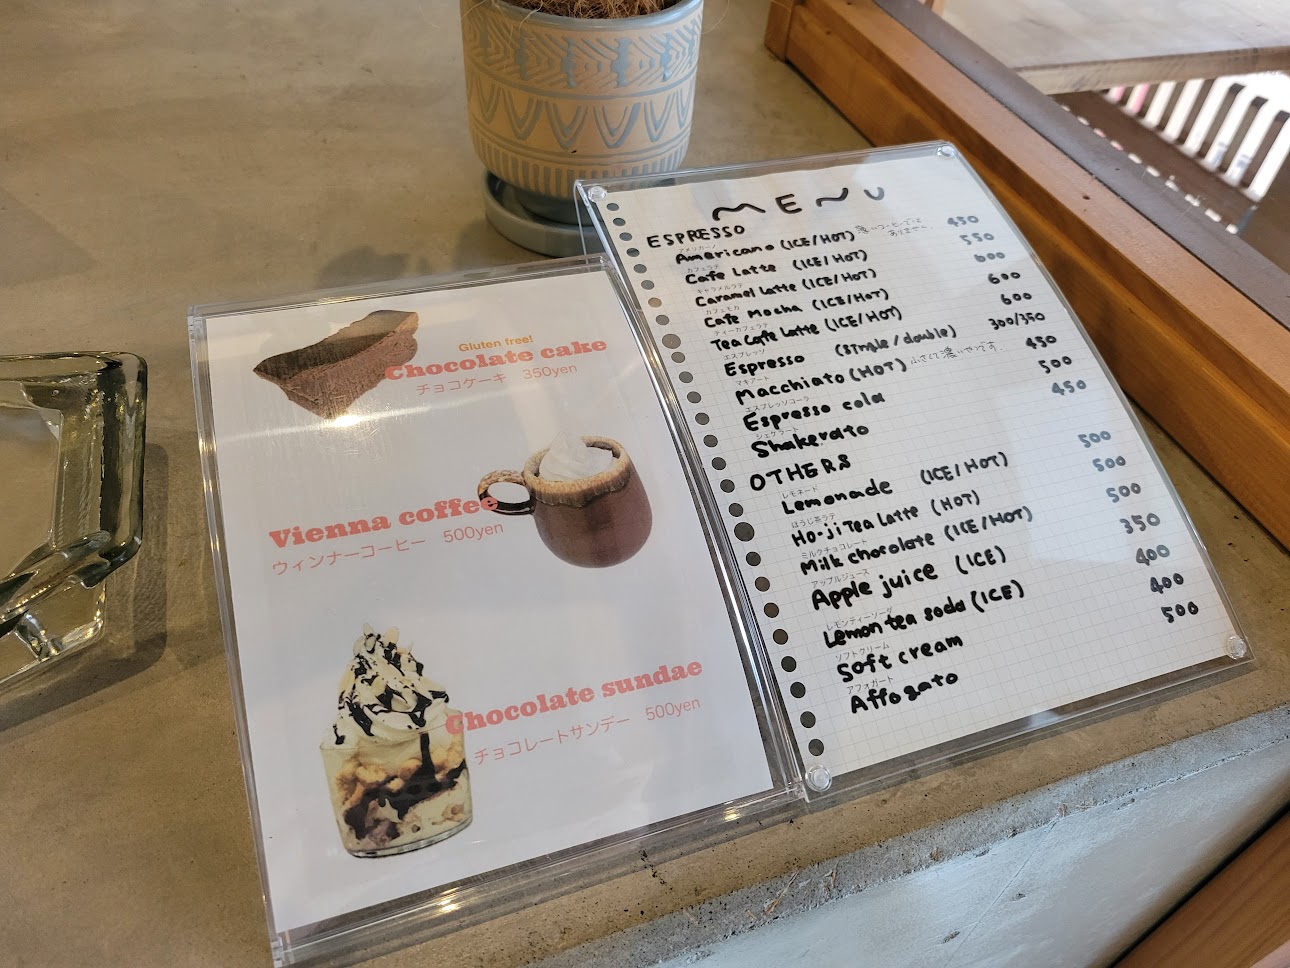 Gluten free!
Chocolate cake
チョコケーキ 350yen
Vienna coffee
ウィンナーコーヒー 500yen
Chocolate sundae
チョコレートサンデー 500yen
MENU
ESPRESSO
アメリカーノ
Americano (ICE/HOT) 450
カフェラテ
Cafe Latte (ICE/HOT) 550
キャラメルラテ
Caramel Latte (ICE/HOT) 600
カフェモカ
Cafe Mocha (ICE/HOT) 600
ティーカフェラテ
Tea Cafe Latte (ICE/HOT) 600
エスプレッソ
Espresso (single/double) 300/350
マキアート
Macchiato (HOT) 小さくて濃いやつです。 450
エスプレッソコーラ
Espresso cola 500
シェケラート
Shakerato 450
OTHERS
レモネード
Lemonade (ICE/HOT) 500
ほうじ茶ラテ
Ho-ji Tea Latte (HOT) 500
ミルクチョコレート
Milk chocolate (ICE/HOT) 500
アップルジュース
Apple juice (ICE) 350
レモンティーソーダ
Lemon tea soda (ICE) 400
ソフトクリーム
Soft cream 400
アフォガート
Affogato 500